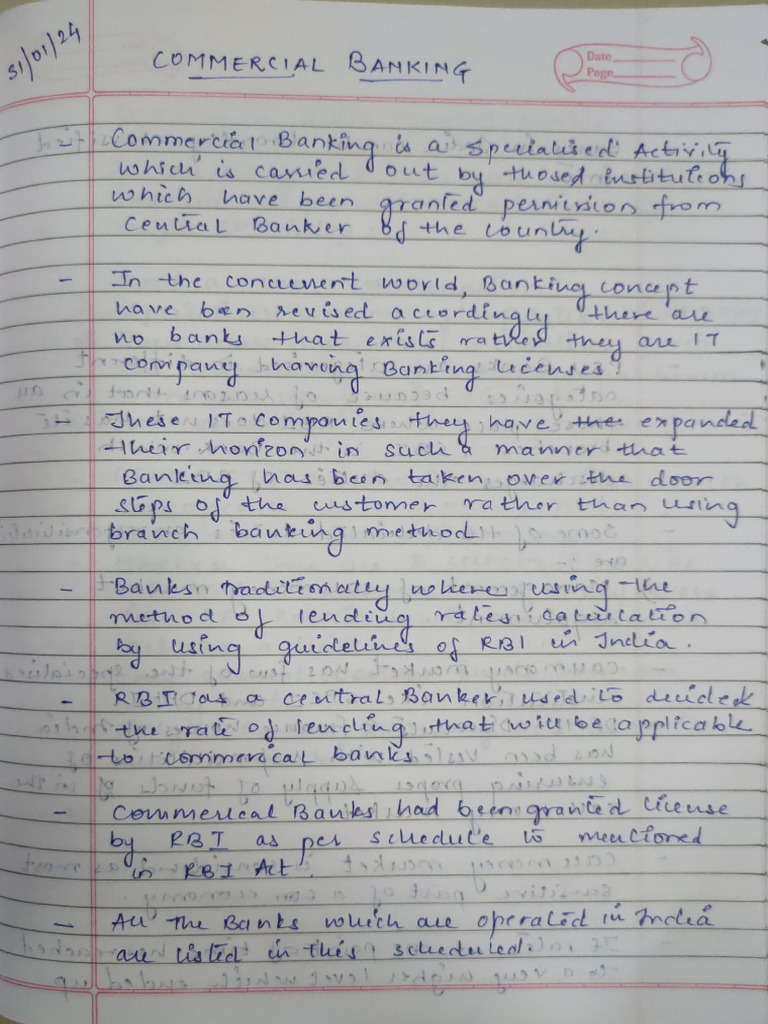 31/01/24
COMMERCIAL BANKING
Date
Page
- Commercial Banking is a specialised Activity
which is carried out by thosed institutions
which have been granted permission from
Central Banker of the country.
- In the concurrent world, Banking concept
have been revised accordingly there are
no banks that exists rather they are IT
company having Banking licenses.
- These IT companies they have the expanded
their horizon in such a manner that
Banking has been taken over the door
steps of the customer rather than using
branch banking method
- Banks traditionally where using the
method of lending rates calculation
by using guidelines of RBI in India.
- RBI as a central Banker used to decided
the rate of lending that will be applicable
to commerical banks
- Commercial Banks had been granted license
by RBI as per schedule to mentioned
in RBI Act.
- All the Banks which are operated in India
are listed in this scheduled.